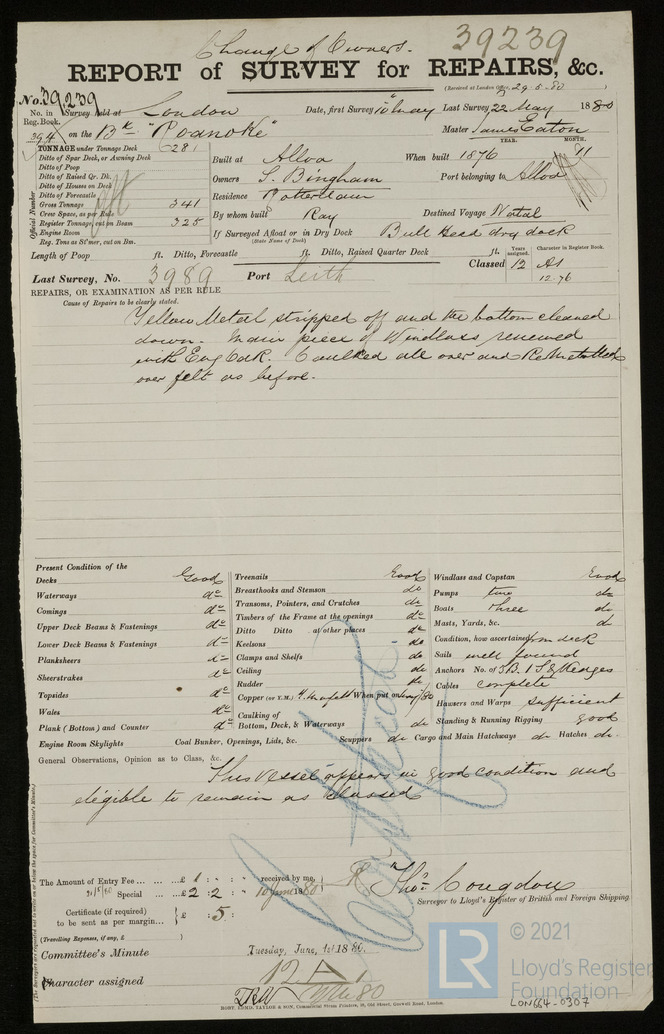 Change of Owners.
39239
REPORT of SURVEY for REPAIRS, &c.
(Received at London Office, 29.5.80)
No. 39,239
No. in Reg. Book. Survey held at London Date, first Survey 10 May Last Survey 22 May 1880
394 on the Bk "Roanoke" Master James Eaton
TONNAGE under Tonnage Deck 281
Ditto of Spar Deck, or Awning Deck
Ditto of Poop
Ditto of Raised Qr. Dk.
Ditto of Houses on Deck
Ditto of Forecastle
Gross Tonnage 341
Crew Space, as per Rule
Register Tonnage, cut on Beam 325
Engine Room
Reg. Tons as St'mer, cut on Bm.
Official Number
YEAR. MONTH.
Built at Alloa When built 1876 11
Owners S. Bingham Port belonging to Alloa
Residence Rotterdam
By whom built Ray Destined Voyage Natal
If Surveyed Afloat or in Dry Dock Bull Head dry dock
(State Name of Dock)
Length of Poop ft. Ditto, Forecastle ft. Ditto, Raised Quarter Deck ft.
Years assigned. Character in Register Book.
Classed 12 A1
12.76
Last Survey, No. 3989 Port Leith
REPAIRS, OR EXAMINATION AS PER RULE
Cause of Repairs to be clearly stated.
Yellow Metal stripped off and the bottom cleaned
down. Main piece of Windlass renewed
with Eng Oak. Caulked all over and Remetalled
over felt as before.
Present Condition of the
Decks Good
Waterways do
Comings do
Upper Deck Beams & Fastenings do
Lower Deck Beams & Fastenings do
Planksheers do
Sheerstrakes do
Topsides do
Wales do
Plank (Bottom) and Counter do
Engine Room Skylights Coal Bunker, Openings, Lids, &c.
Treenails Good
Breasthooks and Stemson do
Transoms, Pointers, and Crutches do
Timbers of the Frame at the openings do
Ditto Ditto at other places do
Keelsons do
Clamps and Shelfs do
Ceiling do
Rudder do
Copper (or Y.M.) When put on May/80
Caulking of
Bottom, Deck, & Waterways do
Scuppers do Cargo and Main Hatchways do Hatches do
Windlass and Capstan Good
Pumps two do
Boats three do
Masts, Yards, &c. do
Condition, how ascertained from deck
Sails well found
Anchors No. of 3B. 1S & Kedges
Cables complete
Hawsers and Warps sufficient
Standing & Running Rigging good
General Observations, Opinion as to Class, &c.
This Vessel appears in good condition and
eligible to remain as Classed
The Amount of Entry Fee £ 1 : : received by me,
31/5/80 Special £ 2 : 2 : 10 June 1880
Certificate (if required) £ : 5 :
to be sent as per margin
(Travelling Expenses, if any, £ )
Thos. Congdon
Surveyor to Lloyd's Register of British and Foreign Shipping.
Committee's Minute Tuesday, June, 1st 1880.
Character assigned 12 A 1
HOFF. EDMD. TAYLOR & SON, Commercial Steam Printers, 39, Old Street, Goswell Road, London.
LR
© 2021
Lloyd's Register
Foundation
LON664-0307